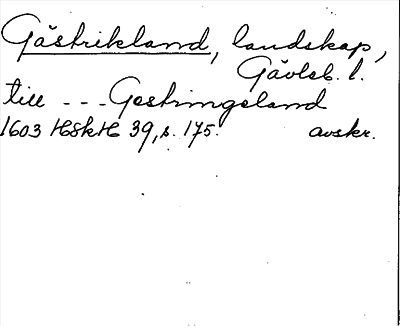 Gästrikland, landskap,
Gävleb. l.
till --- Gestringeland
1603 HSkH 39, s. 175. avskr.